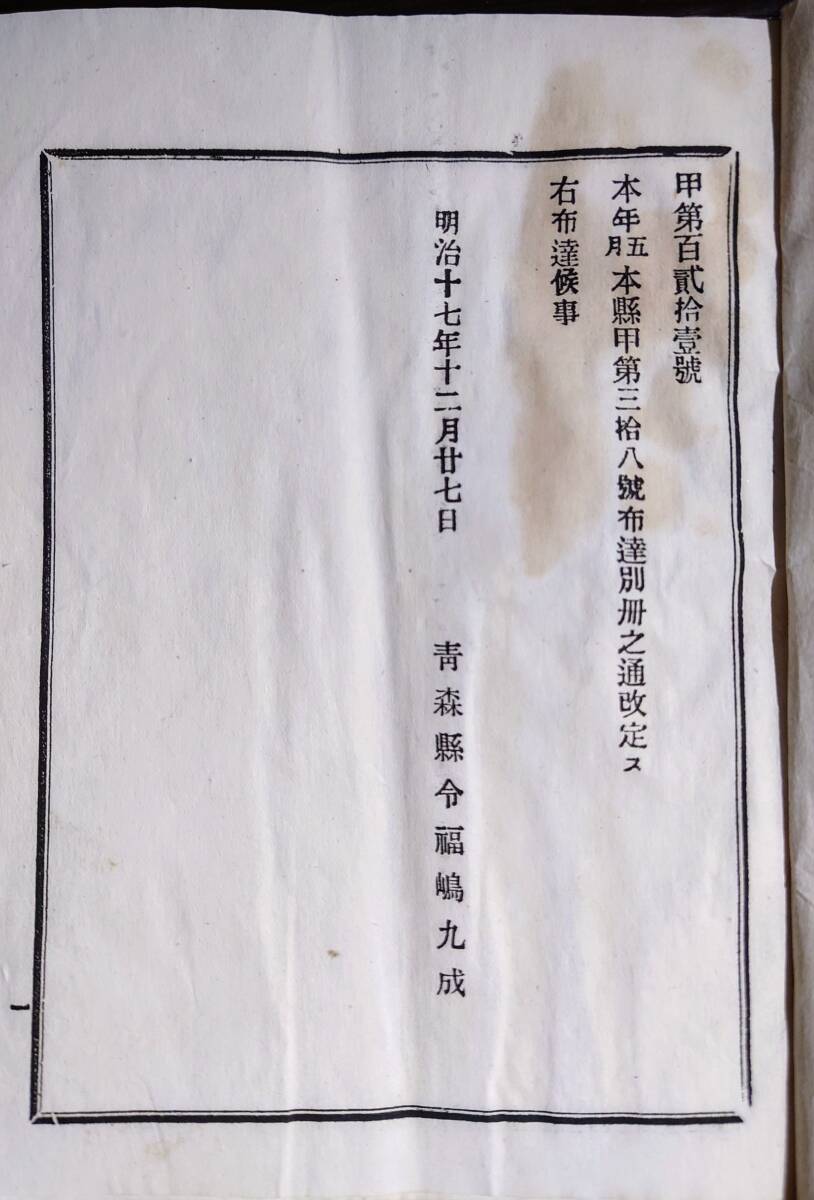 甲第百貳拾壹號
本年五月本縣甲第三拾八號布達別册之通改定ス
右布達候事
明治十七年十二月廿七日
青森縣令福嶋九成
一